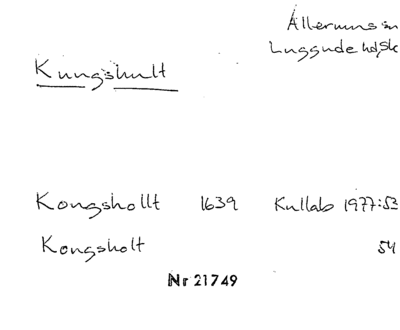 Allerums sn
Luggude hd, Sk
Kungshult
Kongshollt 1639 Kullab 1977:53
Kongsholt 54
Nr 21749